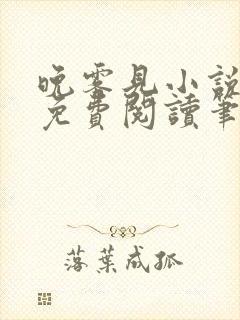 晚零見小說
免費閱讀筆
落葉成孤